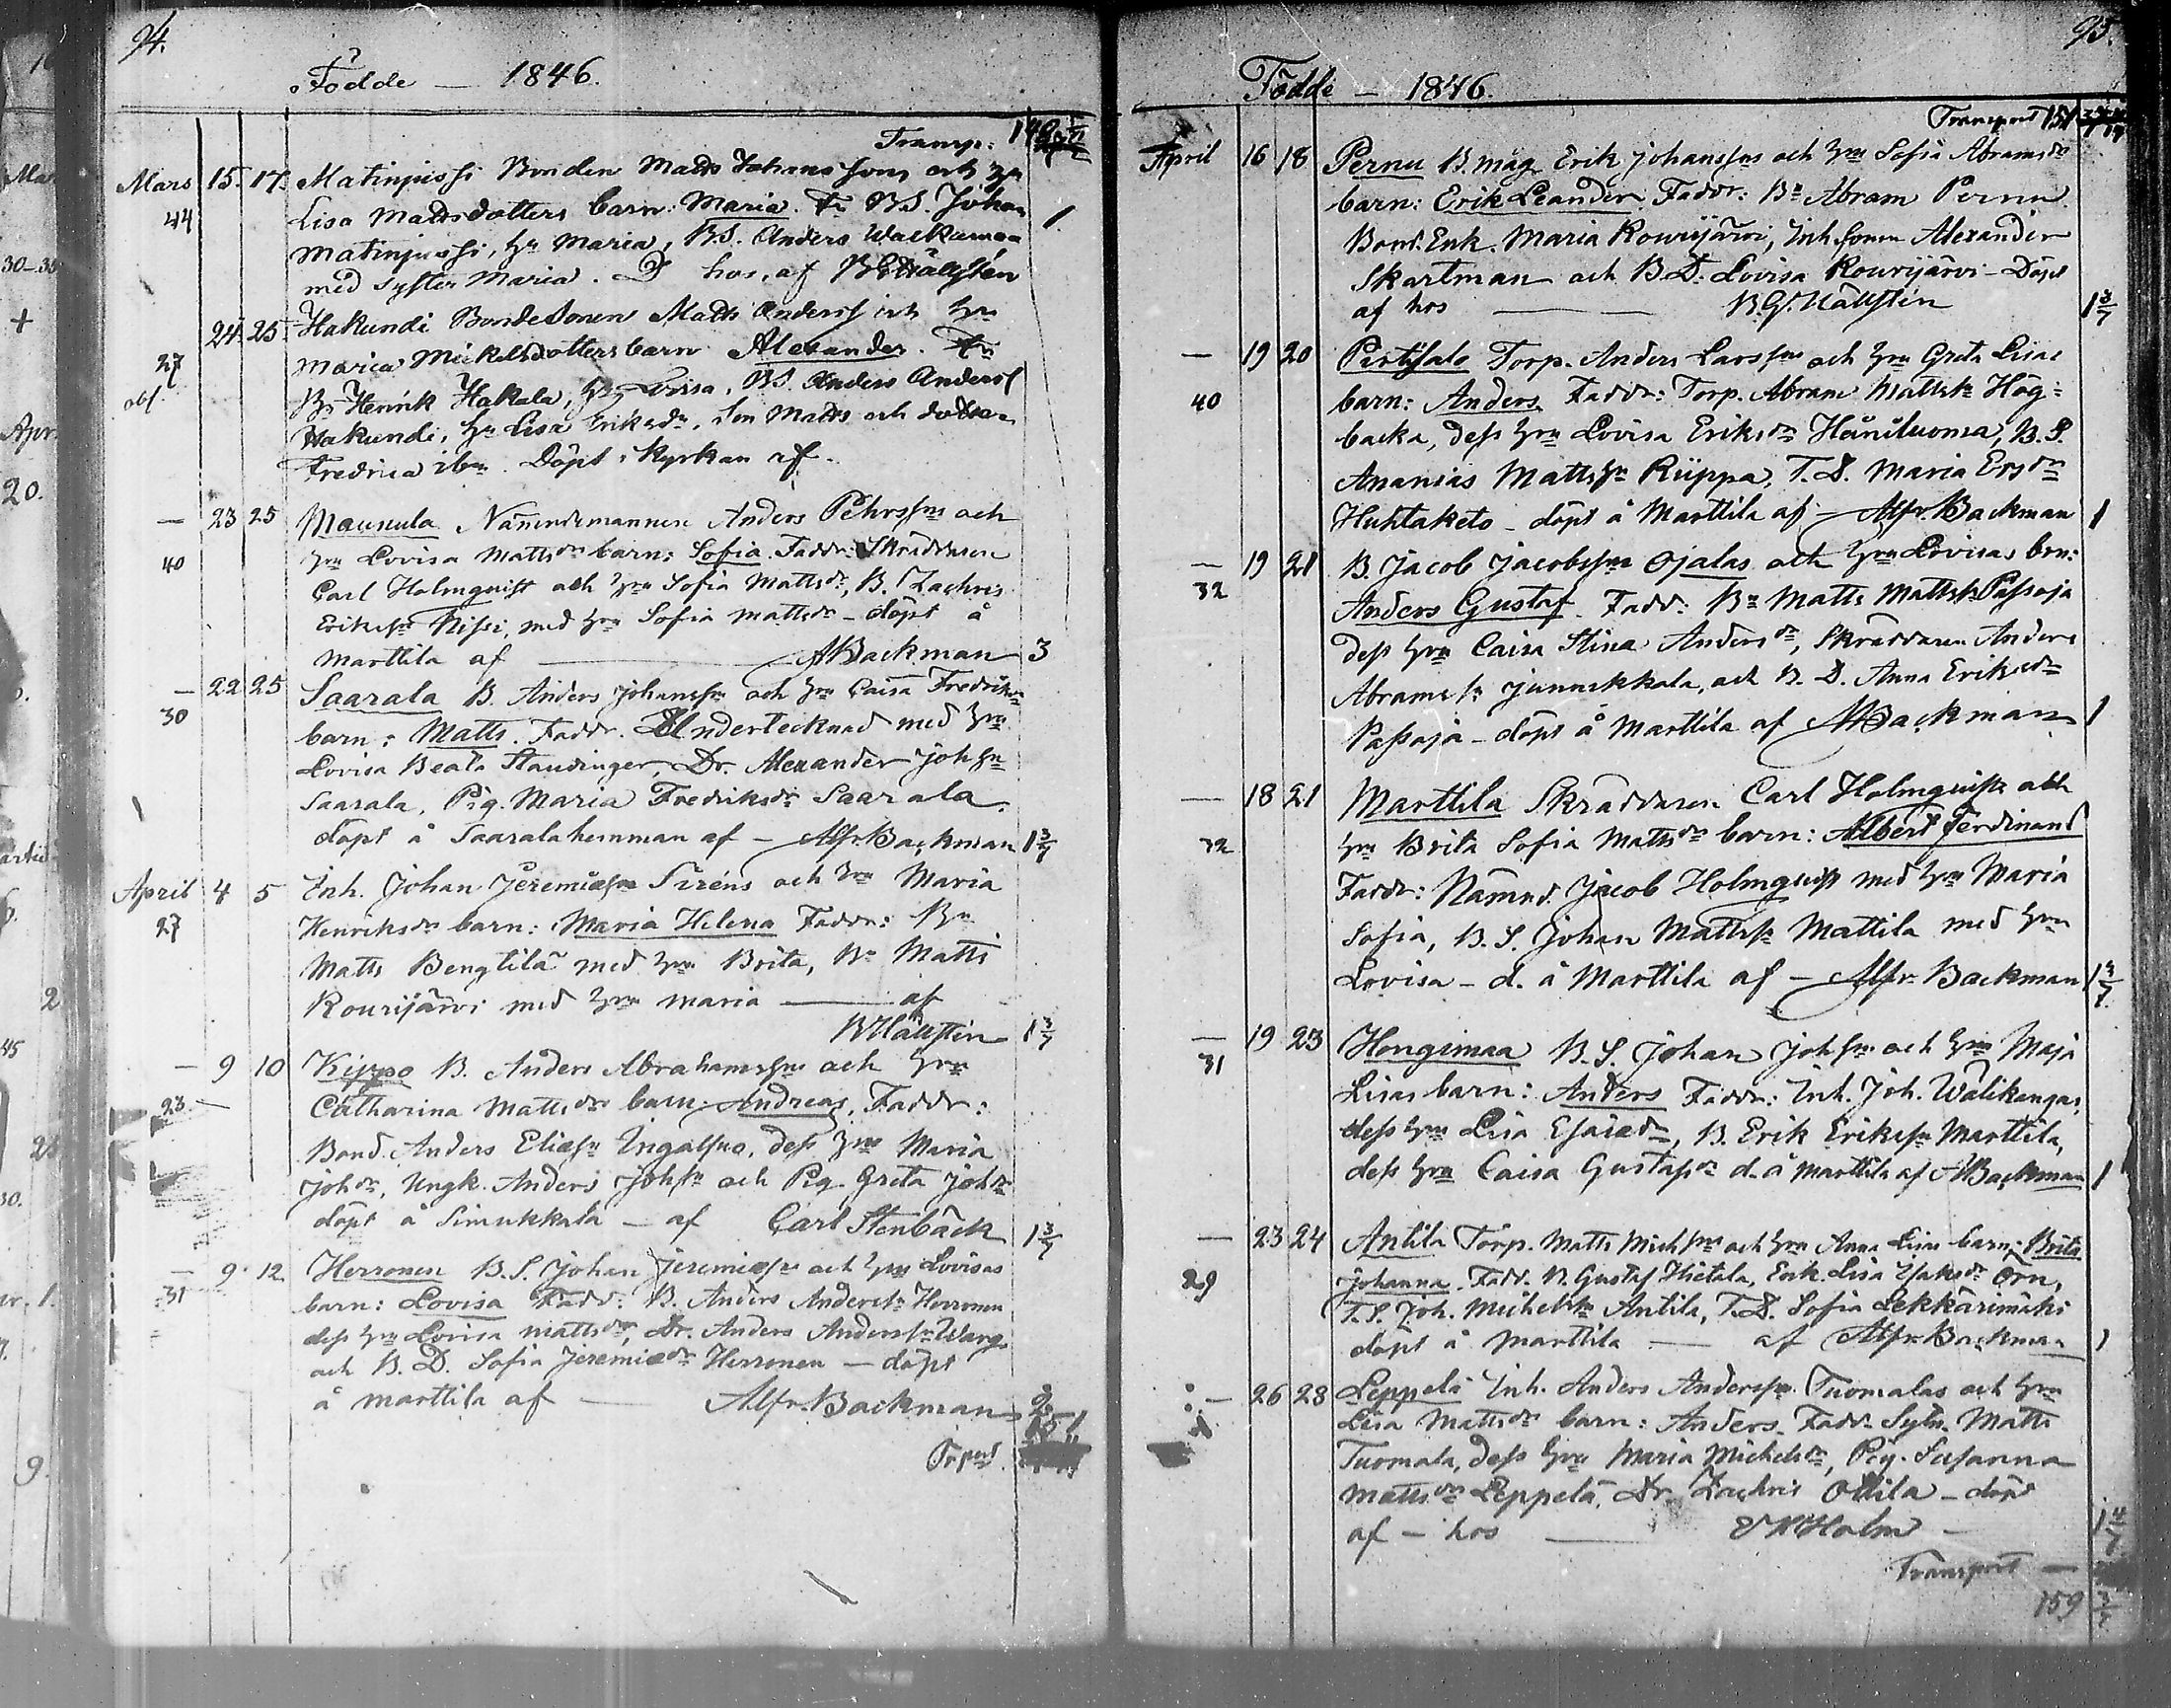 94.
Födde — 1846.
Transp. 140
Mars 15. 17. Matinjussi Bonden Matts Johanssons och hu
44 Lisa Mattsdotters barn: Maria. Fr BS. Johan 1.
Matinjussi, hu Maria, B.S. Anders Wackamaa
med syster Maria. D hos, af Hällsten
24. 25. Hakundi Bondesonen Matts Anderss och hu
27 Maria Mickelsdotters barn Alexander. Fr
obs. Br Henrik Hakala, hu Lovisa, BS Anders Anderss
Hakundi, hu Lisa Eriksdr, son Matts och dottren
Fredrica ibm. Döpt i Kyrkan af.
— 23 25 Maunula Nämndemannen Anders Pehrssns och
40 hru Lovisa Mattsdrs barn: Sofia. Faddr: Skräddaren
Carl Holmquist och hru Sofia Mattsdr, B. Zachris
Erikssn Nissi, med hru Sofia Mattsdr – döpt å
Marttila af — ABackman 3
— 22 25 Saarala B. Anders Johanssns och hru Caisa Fredriksdrs
30 barn: Matts. Faddr. Undertecknad med hru
Lovisa Beata Standinger, Dr. Alexander Johsn
Saarala, Pig. Maria Fredriksdr Saarala.
döpt å Saarala hemman af — Alfr. Backman 1 3/7
April 4 5 Inh. Johan Jeremiæsns Siréns och hru Maria
27 Henriksdrs barn: Maria Helena Faddr: Bn
Matts Bengtilä med hru Brita, Bn Matts
Kourijärvi med hru Maria — af
BHällsten 1 3/7
— 9 10 Kippo B. Anders Abrahamssns och hru
23 — Catharina Mattsdrs barn: Andreas, Faddr:
Bond. Anders Eliæsn Ingalsuo, dess hru Maria
Johdr, Ungk. Anders Johsn och Pig. Greta Johdr
döpt å Simukkala — af Carl Stenbäck 1 3/7
— 9. 12 Herronen B.S. Johan Jeremiæsns och hru Lovisas
31 barn: Lovisa Faddr: B. Anders Anderssn Herronen
dess hru Lovisa Mattsdr, Dr. Anders Anderssn Warg
och B.D. Sofia Jeremiædr Herronen — döpt
å Marttila af — Alfr. Backman 2
151
Trpor
95.
Födde — 1846.
Transport 151
April 16 18 Pernu B. måg Erik Johanssns och hru Sofia Abramsdrs
barn: Erik Leander Faddr: Bn Abram Pernu
Bond. Enk. Maria Kourijärvi, Inh. sonen Alexander
Skartman och B.D. Lovisa Kourijärvi – Döpt
af hos — B.G. Hällsten 1 3/7
— 19 20 Perttsalo Torp. Anders Larssns och hru Greta Lisas
40 barn: Anders Faddr: Torp. Abram Mattssn Hög-
backa, dess hru Lovisa Eriksdr Heiniluoma, B.S.
Ananias Mattssn Riippa, T.D. Maria Ersdr
Huhtaketo – döpt å Marttila af — Alfr. Backman 1
— 19 21 B. Jacob Jacobssns Ojalas och hru Lovisas brn:
32 Anders Gustaf Faddr: Bn Matts Mattssn Passoja
dess hru Caisa Stina Andersdr, Skräddaren Anders
Abramssn Junnikkala, och B.D. Anna Eriksdr
Passoja – döpt å Marttila af ABackman 1
— 18 21 Marttila Skräddaren Carl Holmquists och
32 hru Brita Sofia Mattsdrs barn: Albert Ferdinand
Faddr: Nämnd. Jacob Holmquist med hru Maria
Sofia, B.S. Johan Mattssn Mattila med hru
Lovisa – d. å Marttila af — Alfr. Backman 1 3/7
— 19 23 Hongimaa B.S. Johan Johsns och hru Maja
31 Lisas barn: Anders Faddr: Inh. Joh. Wälikangas,
dess hru Lisa Esaiædr, B. Erik Erikssn Marttila,
dess hru Caisa Gustafsdr d. å Marttila af ABackman 1
— 23 24 Antila Torp. Matts Michsns och hru Anna Lisas barn: Brita
29 Johanna. Faddr. B. Gustaf Hietala, Enk. Lisa Isaksdr Örn,
T.S. Joh. Michelssn Antila, T.D. Sofia Lekkarimäki
döpt å Marttila — af Alfr. Backman 1
— 26 28 Leppelä Inh. Anders Anderssns Tuomalas och hru
Lisa Mattsdrs barn: Anders. Faddr Sytn. Matts
Tuomala, dess hru Maria Michelsdr, Pig. Susanna
Mattsdr Leppelä, Dr. Zachris Ollila – döpt
af – hos — Holm — 1 4/7
Transport —
159 3/7